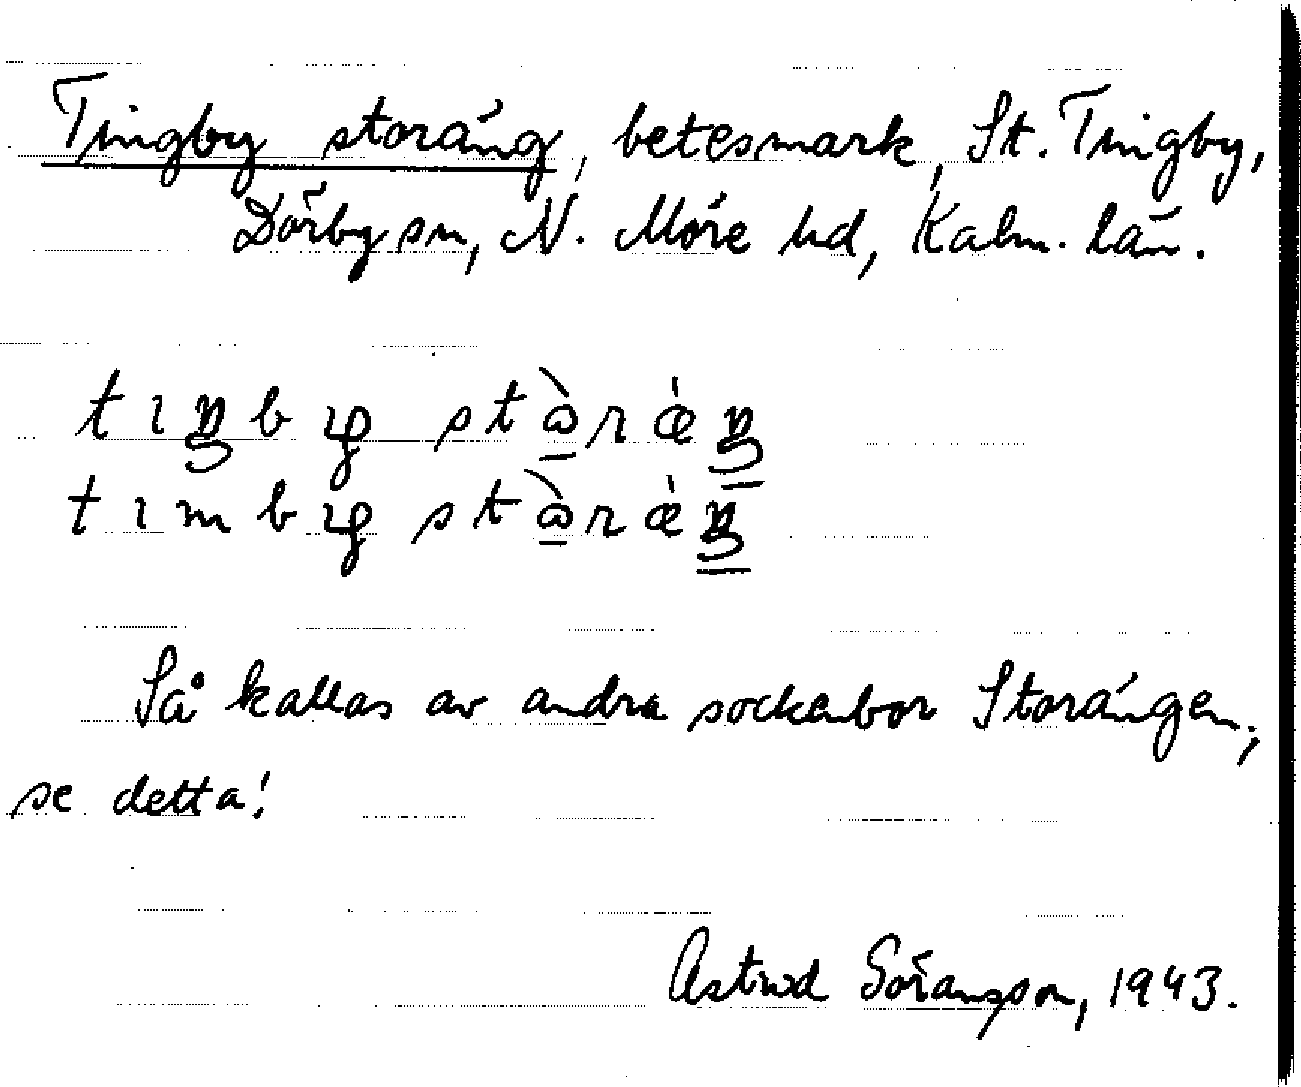 Tingby storäng, betesmark, St. Tingby,
Dörby sn, N. Möre hd, Kalm. län.
Så kallas av andra sockenbor Storängen,
se detta!
Astrid Göransson, 1943.